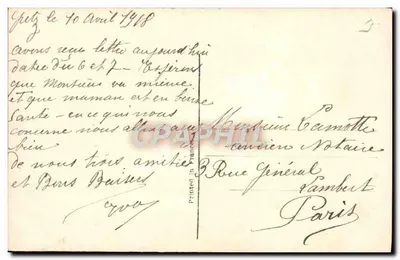 Gretz le 10 Avril 1918
avons reçu lettre aujourd'hui
datée du 6 et 7 - Espérons
que Monsieur va mieux
et que maman est en bonne
Santé - en ce qui nous
concerne nous allons assez
bien
de nous trois amitiés
et Bons Baisers
Monsieur Lamotte
ancien Notaire
3 Rue Général
Lambert
Paris
Printed in France
CPAPHIL